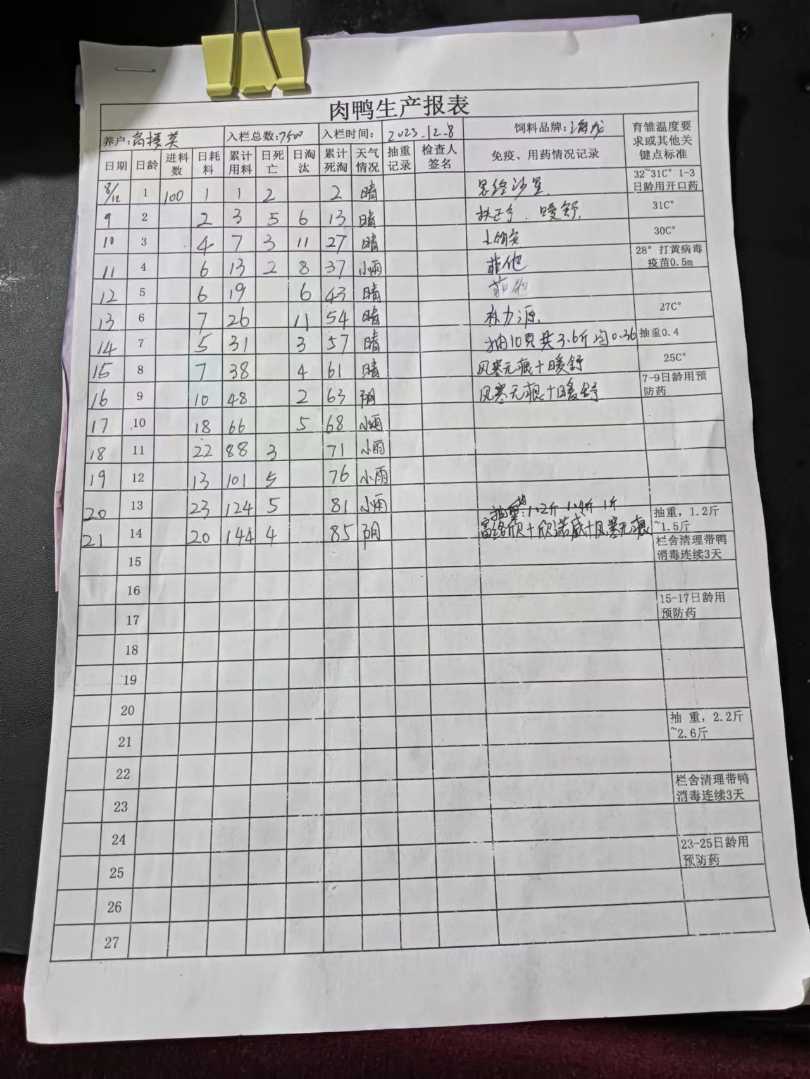 肉鸭生产报表
养户: 入栏总数:7500 入栏时间: 2023.12.8 饲料品牌: 育雏温度要求或其他关键点标准
日期 日龄 进料数 日耗料 累计用料 日死亡 日淘汰 累计死淘 天气情况 抽重记录 检查人签名 免疫、用药情况记录
8/12 1 100 1 1 2 2 晴 恩诺沙星 32~31C° 1-3日龄用开口药
9 2 2 3 5 6 13 晴 暖舒 31C°
10 3 4 7 3 11 27 晴 30C°
11 4 6 13 2 8 37 小雨 28° 打黄病毒疫苗0.5m
12 5 6 19 6 43 晴
13 6 7 26 11 54 晴 27C°
14 7 5 31 3 57 晴 抽10只共3.6斤均0.36 抽重0.4
15 8 7 38 4 61 晴 风寒无痕+暖舒 25C°
16 9 10 48 2 63 阴 风寒无痕+暖舒 7-9日龄用预防药
17 10 18 66 5 68 小雨
18 11 22 88 3 71 小雨
19 12 13 101 5 76 小雨
20 13 23 124 5 81 小雨 抽重: 1.02斤 1.04斤 1斤 抽重，1.2斤~1.5斤
21 14 20 144 4 85 阴 +风寒无痕 栏舍清理带鸭消毒连续3天
15
16 15-17日龄用预防药
17
18
19
20 抽 重，2.2斤~2.6斤
21
22 栏舍清理带鸭消毒连续3天
23
24 23-25日龄用预防药
25
26
27